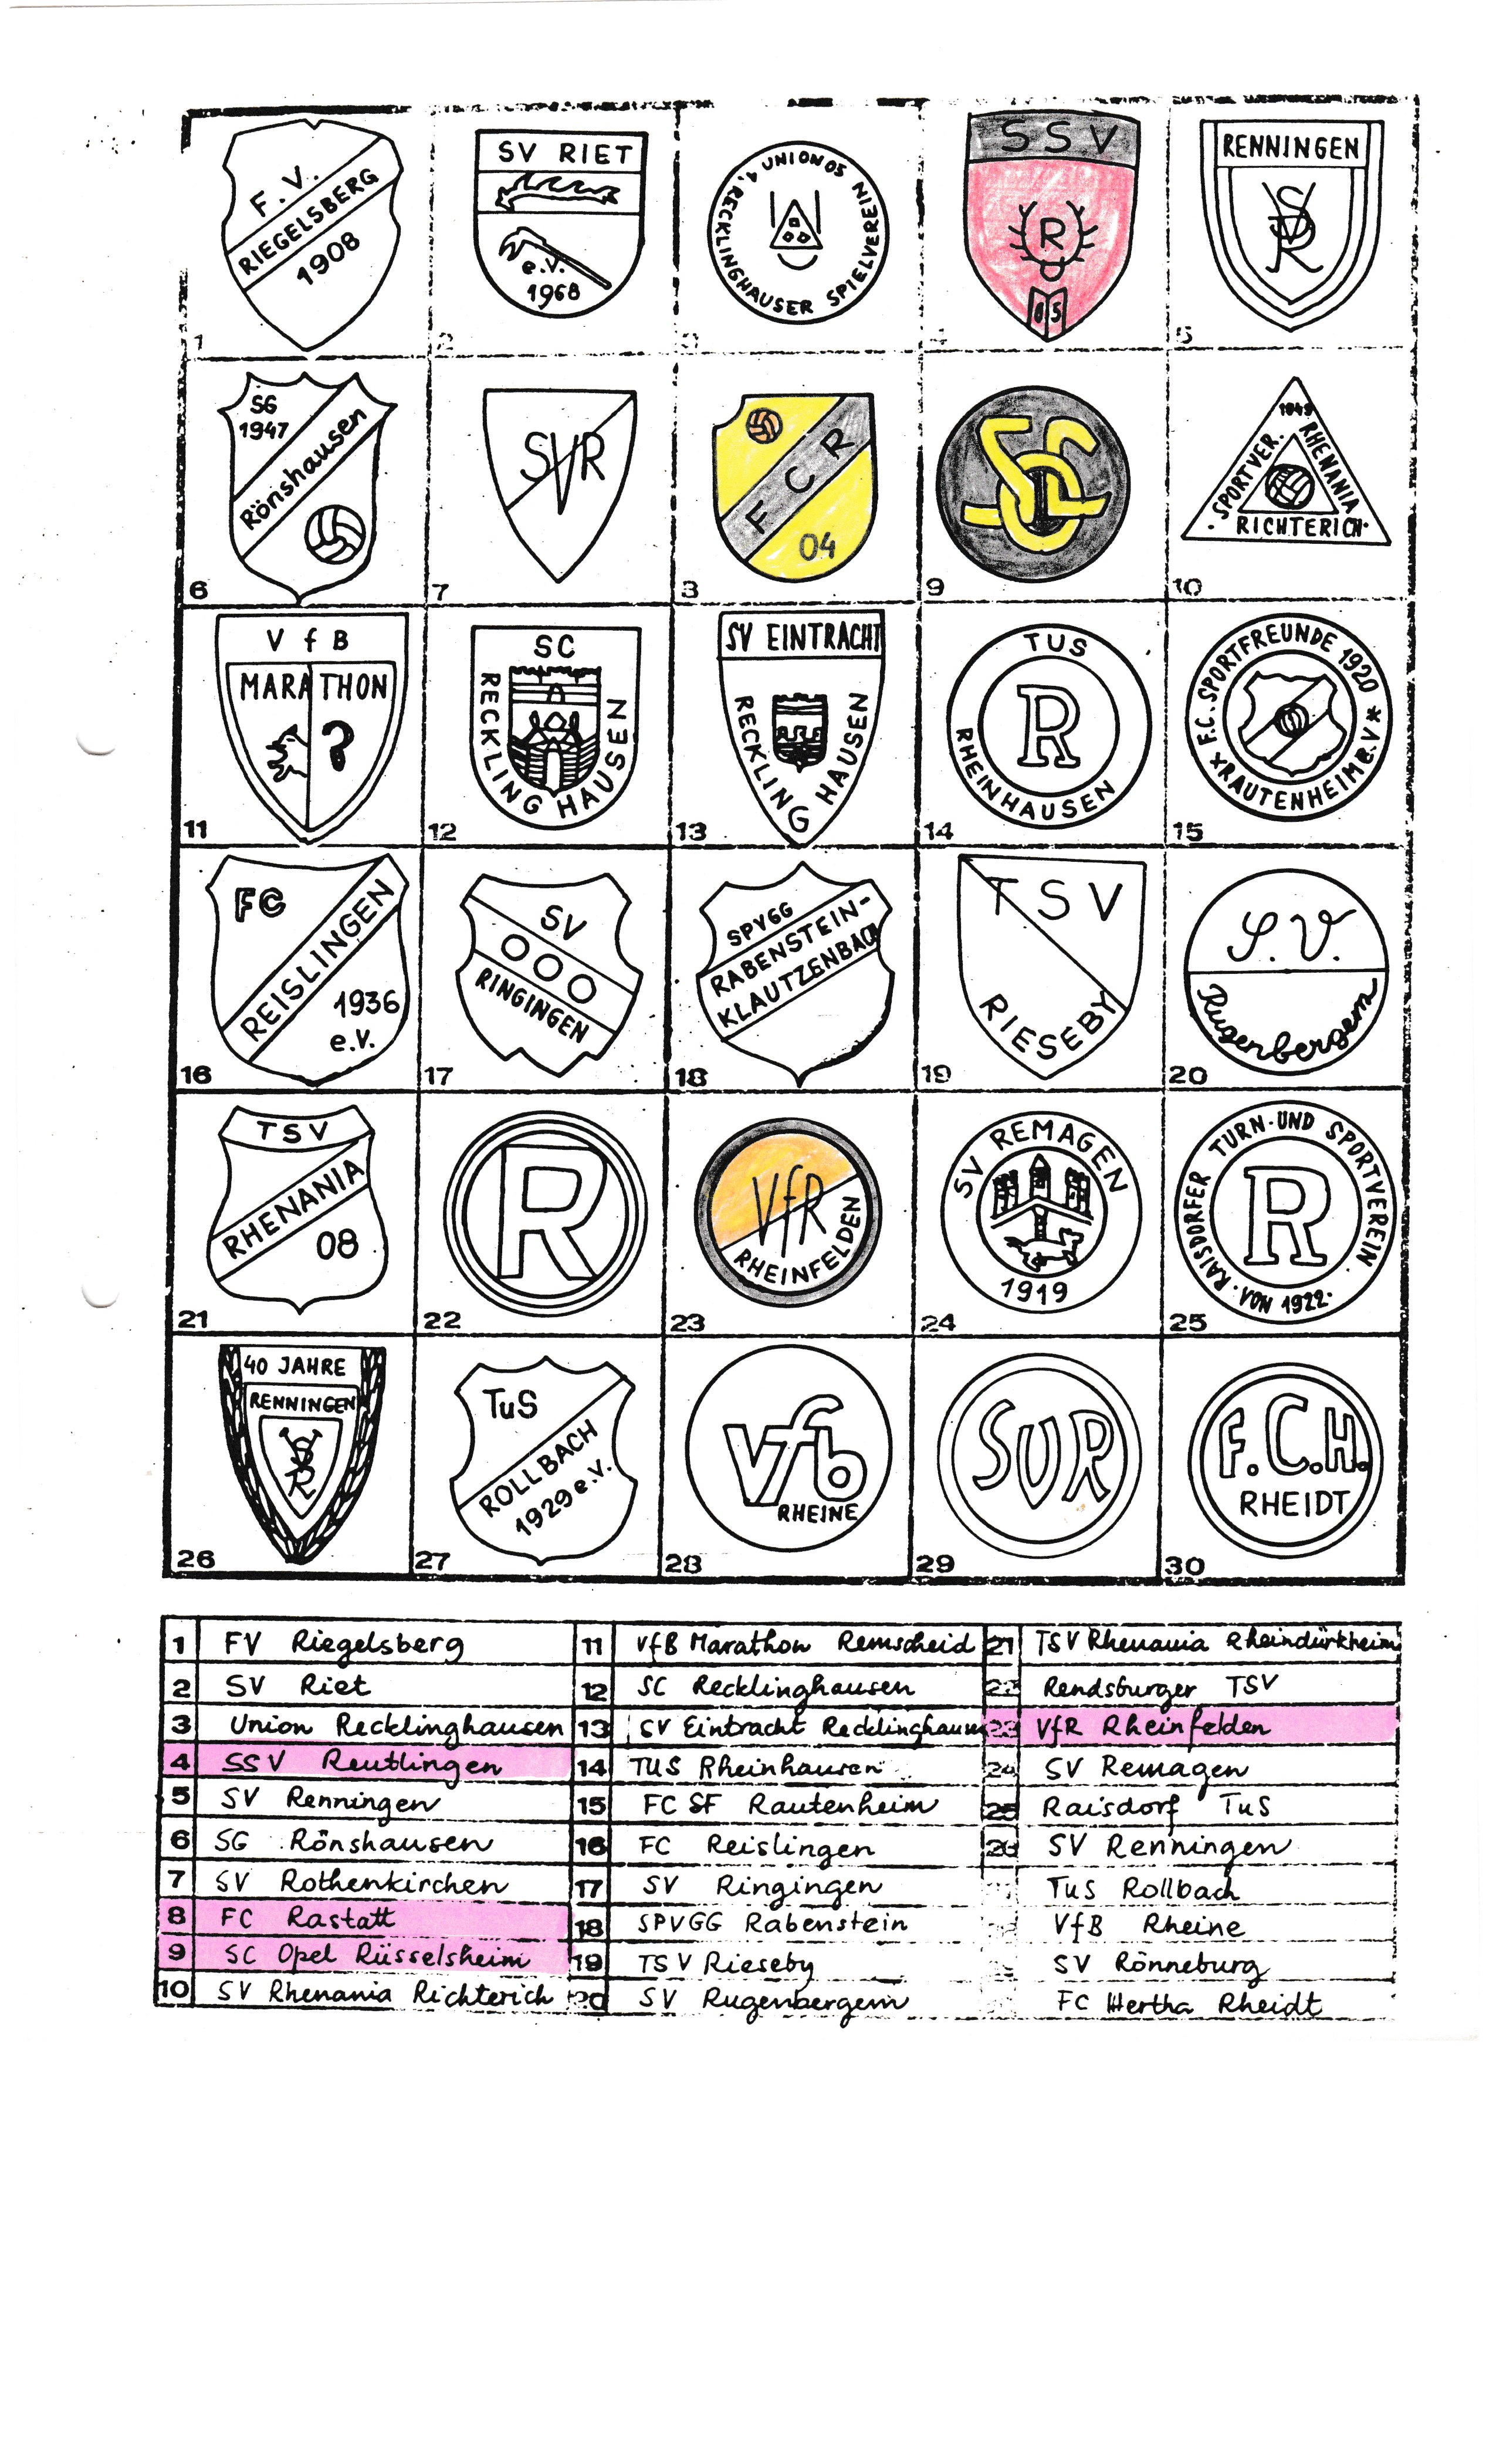 F. V.
RIEGELSBERG
1908
1
SV RIET
e.V.
1968
2
1. RECKLINGHAUSER SPIELVEREIN UNION 05
3
SSV
R
05
4
RENNINGEN
SVR
5
SG
1947
Rönshausen
6
SVR
7
FCR
04
8
SC
O
9
1949
SPORTVER. RHENANIA
RICHTERICH
10
V f B
MARATHON
11
SC
RECKLING HAUSEN
12
SV EINTRACHT
RECKLING HAUSEN
13
TUS
R
RHEINHAUSEN
14
F.C. SPORTFREUNDE 1920
RAUTENHEIM e.V
15
FC
REISLINGEN
1936
e.V.
16
SV
OOO
RINGINGEN
17
SPVGG
RABENSTEIN-
KLAUTZENBACH
18
TSV
RIESEBY
19
S.V.
Rugenbergem
20
TSV
RHENANIA
08
21
R
22
VfR
RHEINFELDEN
23
SV REMAGEN
1919
24
RAISDORFER TURN-UND SPORTVEREIN
R
VON 1922
25
40 JAHRE
RENNINGEN
SVR
26
TuS
ROLLBACH
1929 e.V.
27
vfb
RHEINE
28
SVR
29
F.C.H.
RHEIDT
30
1 FV Riegelsberg
2 SV Riet
3 Union Recklinghausen
4 SSV Reutlingen
5 SV Renningen
6 SG Rönshausen
7 SV Rothenkirchen
8 FC Rastatt
9 SC Opel Rüsselsheim
10 SV Rhenania Richterich
11 VfB Marathon Remscheid
12 SC Recklinghausen
13 SV Eintracht Recklinghausen
14 TUS Rheinhausen
15 FC SF Rautenheim
16 FC Reislingen
17 SV Ringingen
18 SPVGG Rabenstein
19 TSV Rieseby
20 SV Rugenbergem
21 TSV Rhenania Rheindürkheim
22 Rendsburger TSV
23 VfR Rheinfelden
24 SV Remagen
25 Raisdorf TuS
26 SV Renningen
TuS Rollbach
VfB Rheine
SV Rönneburg
FC Hertha Rheidt